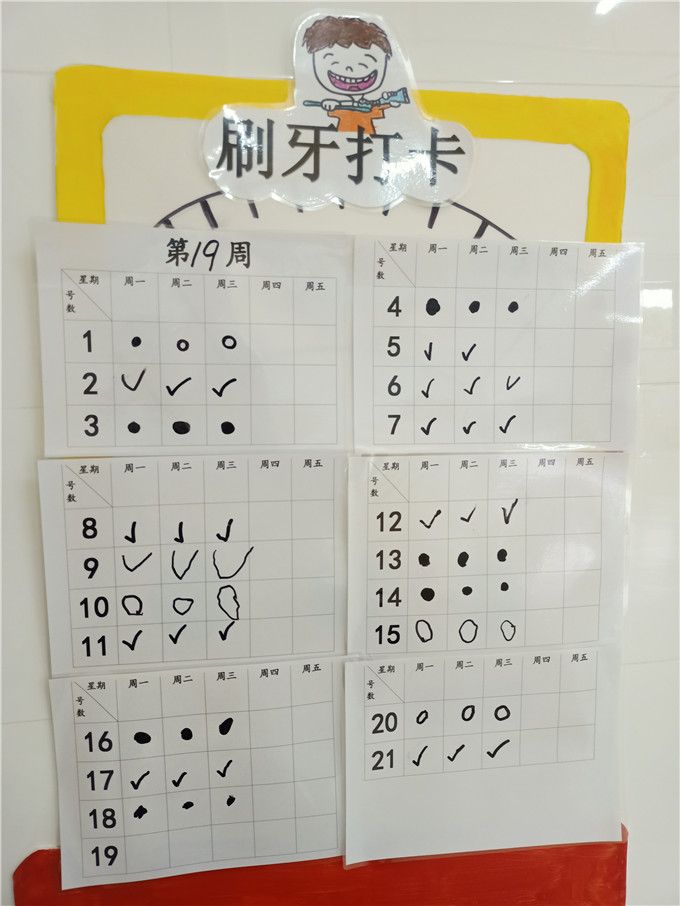 刷牙打卡
第19周
星期 周一 周二 周三 周四 周五
号数
1 ● ○ ○
2 ✓ ✓ ✓
3 ● ● ●
星期 周一 周二 周三 周四 周五
号数
4 ● ● ●
5 ✓ ✓
6 ✓ ✓ ✓
7 ✓ ✓ ✓
星期 周一 周二 周三 周四 周五
号数
8 ✓ ✓ ✓
9 ✓ ✓ ✓
10 ○ ○ ○
11 ✓ ✓ ✓
星期 周一 周二 周三 周四 周五
号数
12 ✓ ✓ ✓
13 ● ● ●
14 ● ● ●
15 ○ ○ ○
星期 周一 周二 周三 周四 周五
号数
16 ● ● ●
17 ✓ ✓ ✓
18 ● ● ●
19
星期 周一 周二 周三 周四 周五
号数
20 ○ ○ ○
21 ✓ ✓ ✓